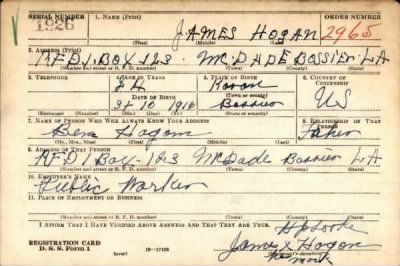 SERIAL NUMBER 1. NAME (Print) ORDER NUMBER
1926 JAMES HOGAN 2965
(First) (Middle) (Last)
2. ADDRESS (Print)
RFD 1, BOX 123 McDADE BOSSIER LA
(Number and street or R. F. D. number) (Town) (County) (State)
3. TELEPHONE 4. AGE IN YEARS 5. PLACE OF BIRTH 6. COUNTRY OF CITIZENSHIP
24
DATE OF BIRTH (Town or county)
3 10 1916 Bossier US
(Exchange) (Number) (Mo.) (Day) (Yr.) (State or country)
7. NAME OF PERSON WHO WILL ALWAYS KNOW YOUR ADDRESS 8. RELATIONSHIP OF THAT PERSON
Ben Hogan Father
(Mr., Mrs., Miss) (First) (Middle) (Last)
9. ADDRESS OF THAT PERSON
RFD 1 Box - 123 McDade Bossier LA
(Number and street or R. F. D. number) (Town) (County) (State)
10. EMPLOYER'S NAME
Public Worker
11. PLACE OF EMPLOYMENT OR BUSINESS
(Number and street or R. F. D. number) (Town) (County) (State)
I AFFIRM THAT I HAVE VERIFIED ABOVE ANSWERS AND THAT THEY ARE TRUE.
REGISTRATION CARD James X Hogan
D. S. S. Form 1 (over) 16—17105 his mark